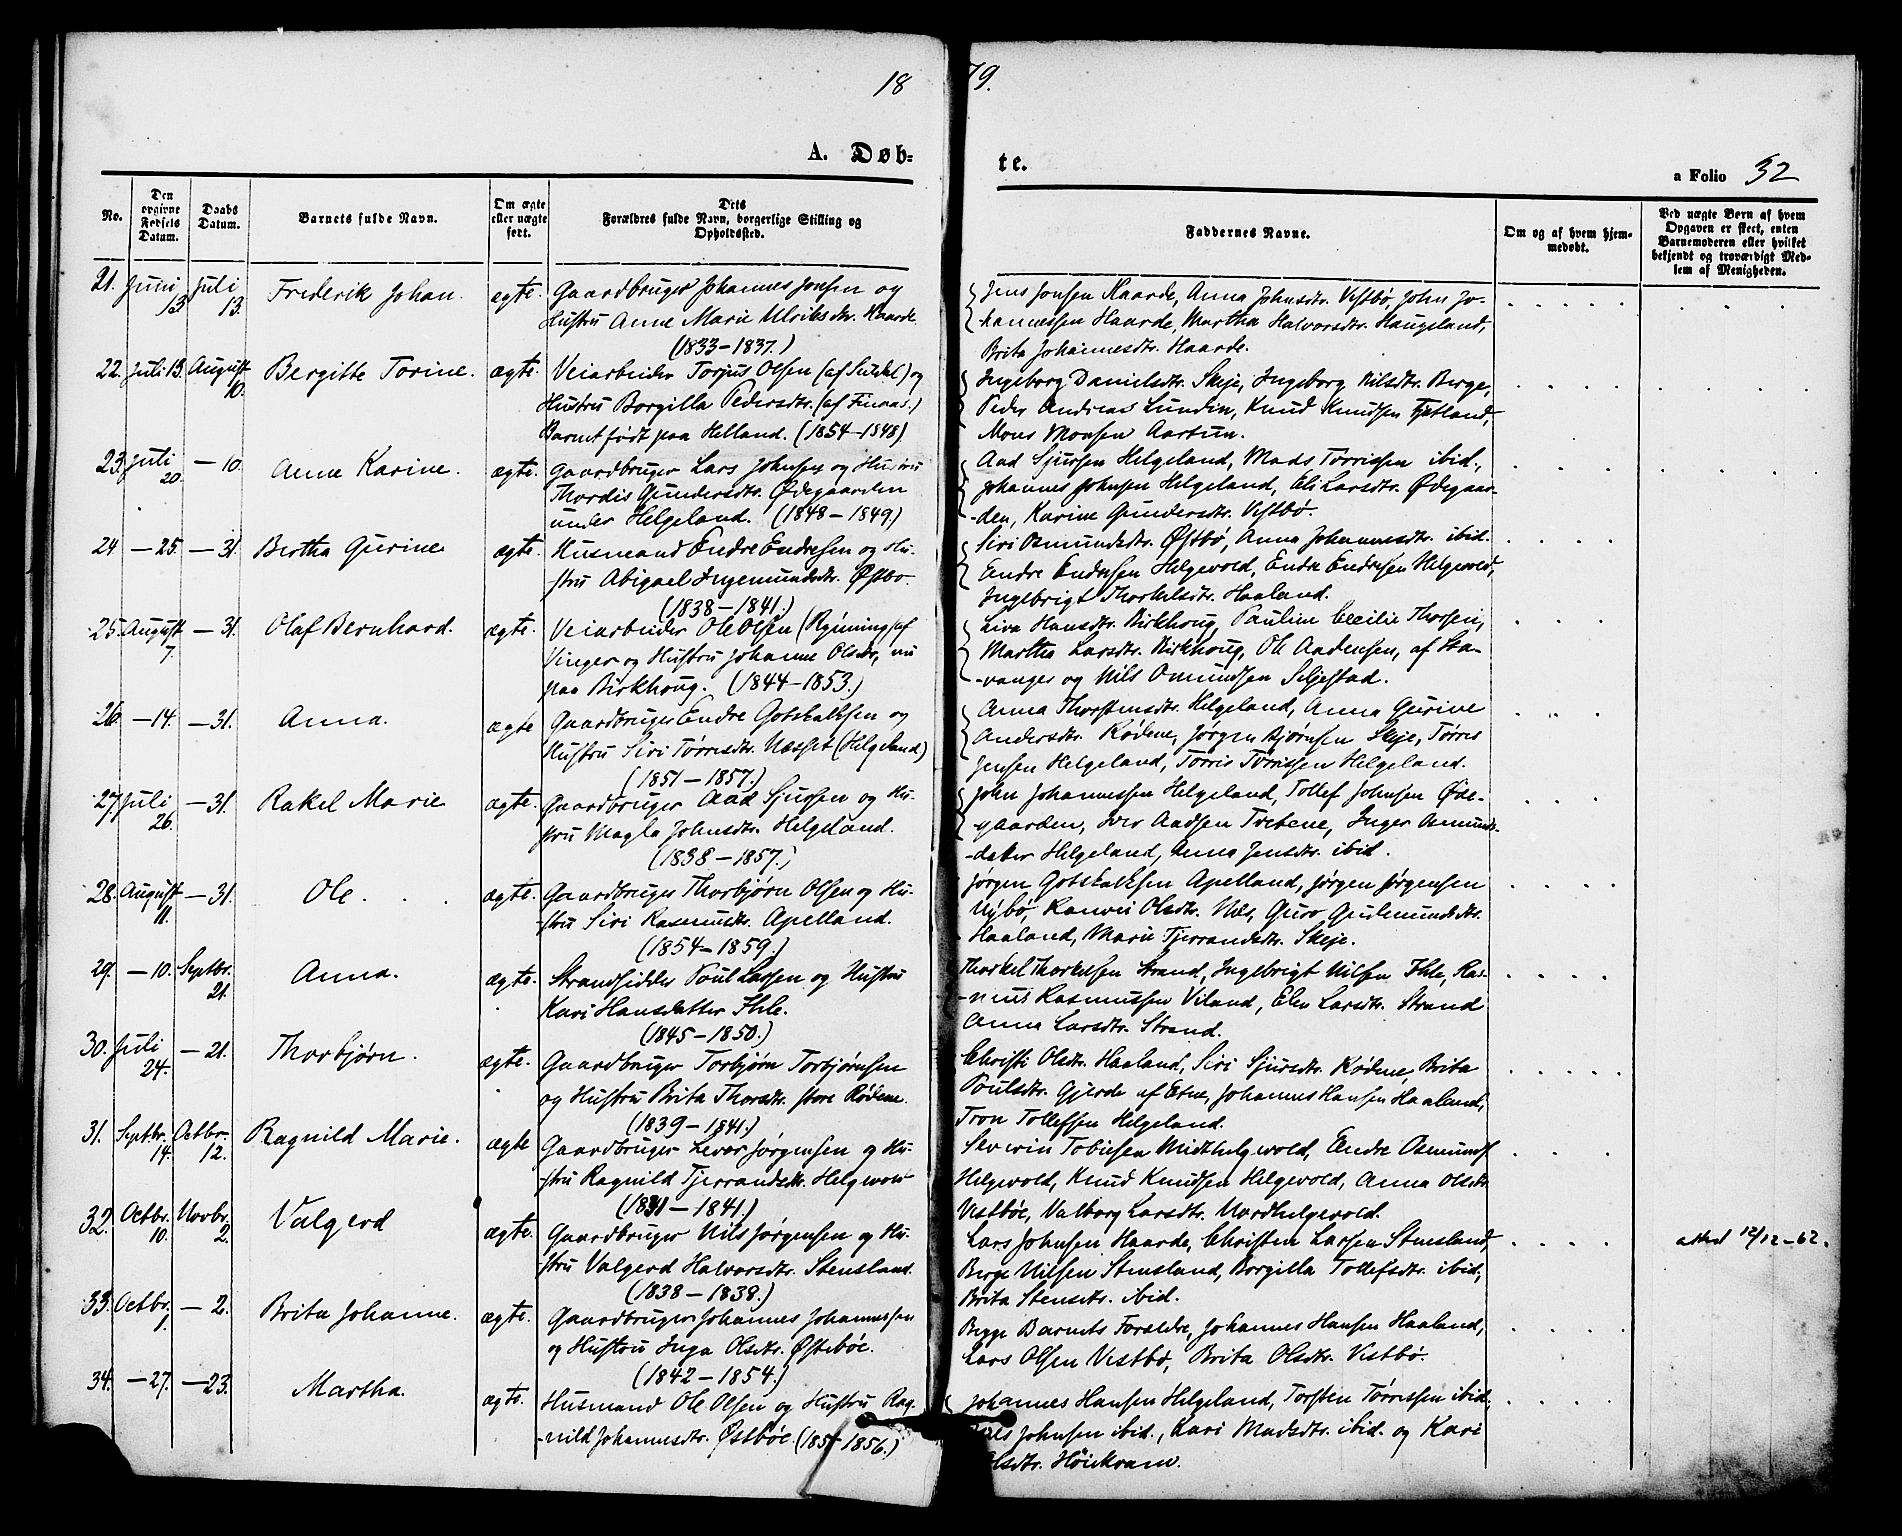 1879.
A. Døbte.
a Folio 32
No.
Den opgivne Fødsels Datum.
Daabs Datum.
Barnets fulde Navn.
Om ægte eller uægte født.
Dets Forældres fulde Navn, borgerlige Stilling og Opholdssted.
Faddernes Navne.
Om og af hvem hjemmedøbt.
Ved uægte Børn af hvem Opgaven er skeet, enten Barnemoderen eller hvilket bekjendt og troværdigt Medlem af Menigheden.
21. Juni 13. Juli 13. Frederik Johan. egte.
Gaardbruger Johannes Jonsen og
Hustru Anne Marie Ulriksdtr. Haarde.
(1833-1837.)
Jens Jonsen Haarde, Anna Johnsdtr. Vestbø, John Jo-
hannessen Haarde, Martha Halvorsdtr. Haugeland,
Brita Johannesdtr. Haarde.
22. Juli 13. August 10. Bergitte Torine. ægte.
Veiarbeider Torjus Olsen (af Suldal) og
Hustru Borgilla Pedersdtr. (af Finaas.)
Barnet født paa Helland. (1854-1848)
Ingeborg Danielsdtr. Skeje, Ingeborg Nilsdtr. Berge,
Peder Andreas Lundin, Knud Knudsen Tjetland,
Mons Monsen Aartun.
23. Juli 20. - 10. Anne Karine. ægte.
Gaardbruger Lars Johnsen og Hustru
Thordis Gundersdtr. Ødegaarden
under Helgeland. (1848-1849.)
Aad Sjursen Helgeland, Mads Torrissen ibid.,
Johannes Johnsen Helgeland, Eli Larsdtr. Ødegaar-
-den, Karine Gundersdtr. Vestbø.
24 - 25. - 31. Bertha Gurine ægte.
Husmand Endre Endresen og Hu-
stru Abigael Ingemundsdtr. Østbø.
(1838-1841.)
Siri Osmundsdtr. Østbø, Anna Johannesdtr. ibid.
Endre Endresen Helgevold, Endre Endresen Helgevold,
Ingebrigt Thorkelsdtr. Haaland.
25. August 7. - 31. Olaf Bernhard. ægte.
Veiarbeider Ole Olsen (Rynning) af
Vinger og Hustru Johanne Olsdtr, nu
paa Birkhoug. (1844-1853.)
Liva Hansdtr. Birkhoug, Pauline Cecilie Thorsen,
Martha Larsdtr. Birkhoug, Ole Aadensen, af Sta-
-vanger og Nils Omundsen Seljestad.
26. - 14. - 31. Anna. ægte
Gaardbruger Endre Gotskalksen og
Hustru Siri Tørresdtr. Næsset (Helgeland)
(1851-1857.)
Anna Thorstensdtr. Helgeland, Anna Gurine
Andersdtr. Rødene, Jørgen Bjørnsen Skeje, Tørris
Jensen Helgeland, Torris Torrissen Helgeland.
27. Juli 26. - 31. Rakel Marie ægte.
Gaardbruger Aad Sjursen og Hu-
stru Magla Johnsdtr. Helgeland.
(1838-1857.)
John Johannessen Helgeland, Tollef Johnsen Øde-
gaarden, Iver Aadsen Tvetene, Inger Osmunds-
-dater Helgeland, Anna Jensdtr. ibid.
28. August 11. - 31. Ole. ægte.
Gaardbruger Thorbjørn Olsen og Hu-
-stru Siri Rasmusdtr. Apelland.
(1854-1859.)
Jørgen Gotskalksen Apelland, Jørgen Jørgensen
Nybø, Ranvei Olsdtr. Nes, Guro Gudmundsdtr.
Haaland, Marie Tjerrandsdtr. Skeje.
29. - 10. Septbr. 21. Anna. ægte.
Strandsidder Poul Larsen og Hustru
Kari Hansdatter Ihle.
(1845-1850.)
Thorkel Thorkelsen Strand, Ingebrigt Nilsen Ihle, Ras-
-mus Rasmussen Viland, Elen Larsdtr. Strand
Anna Larsdtr. Strand.
30. Juli 24. - 21. Thorbjørn. ægte.
Gaardbruger Torbjørn Torbjørnsen
og Hustru Brita Thorsdtr. store Rødene.
(1839-1841.)
Christi Olsdtr. Haaland, Siri Sjursdtr. Rødene, Brita
Poulsdtr. Gjerde af Etne, Johannes Hansen Haaland,
Tron Tollefsen Helgeland.
31. Septbr. 14. Octbr. 12. Ragnild Marie. ægte
Gaardbruger Levor Jørgensen og Hu-
-stru Ragnild Tjerrandsdtr. Helgevold
(1841-1841.)
Severin Tobiesen Midthelgevold, Endre Osmunds.
Helgevold, Knud Knudsen Helgevold, Anna Olsdtr.
Vestbøe, Valborg Larsdtr. Nordhelgevold.
32. Octbr. 10. Novbr. 2. Valgerd ægte.
Gaardbruger Nils Jørgensen og Hu-
stru Valgerd Halvorsdtr. Stensland.
(1838-1838.)
Lars Johnsen Haarde, Christen Larsen Stensland,
Berge Nilsen Stensland, Borgilla Tollefsdtr. ibid,
Brita Stensdtr. ibid.
attest 12/12-62.
33. Octbr. 1. - 2. Brita Johanne. ægte.
Gaardbruger Johannes Johannessen
og Hustru Inga Olsdtr. Østebøe.
(1842-1854.)
Begge Barnets Forældre, Johannes Hansen Haaland,
Lars Olsen Vestbø, Brita Olsdtr. Vestbø.
34. - 27. - 23. Martha. ægte.
Husmand Ole Olsen og Hustru Rag-
-nild Johannesdtr. Østbøe (185 -1856.)
Johannes Hansen Helgeland, Torsten Tørressen ibid.
Johnsen ibid., Kari Madsdtr. ibid. og Kari
Olsdtr. Høiekvam.